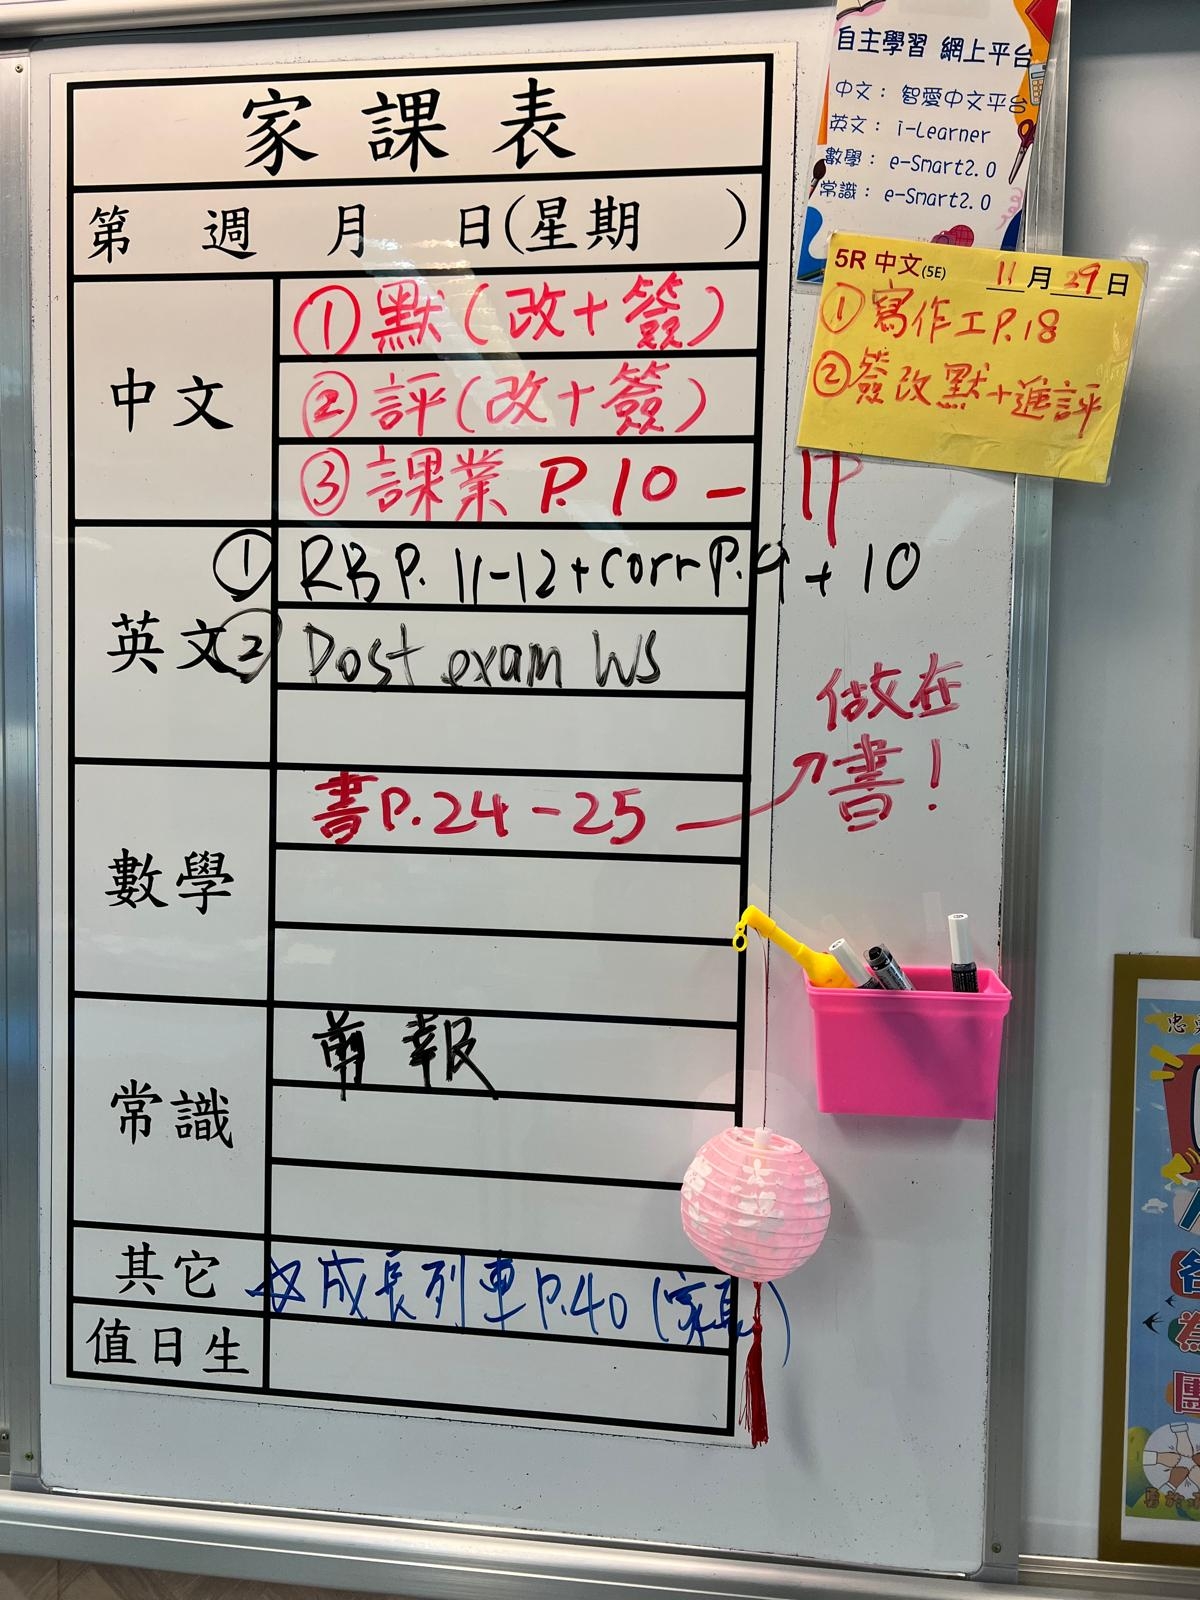 自主學習 網上平台
中文：智愛中文平台
英文：i-Learner
數學：e-Smart2.0
常識：e-Smart2.0
5R 中文(5E) 11月29日
①寫作工P.18
②簽改默+進評
家課表
第 週 月 日(星期 )
中文
①默(改+簽)
②評(改+簽)
③課業 P.10 -
英文
① RB P. 11-12+Corr P.9 + 10
② Post exam WS
數學
書P.24-25
做在
書！
常識
剪報
其它
☆成長列車P.40(家長)
值日生
忠
各
為
團